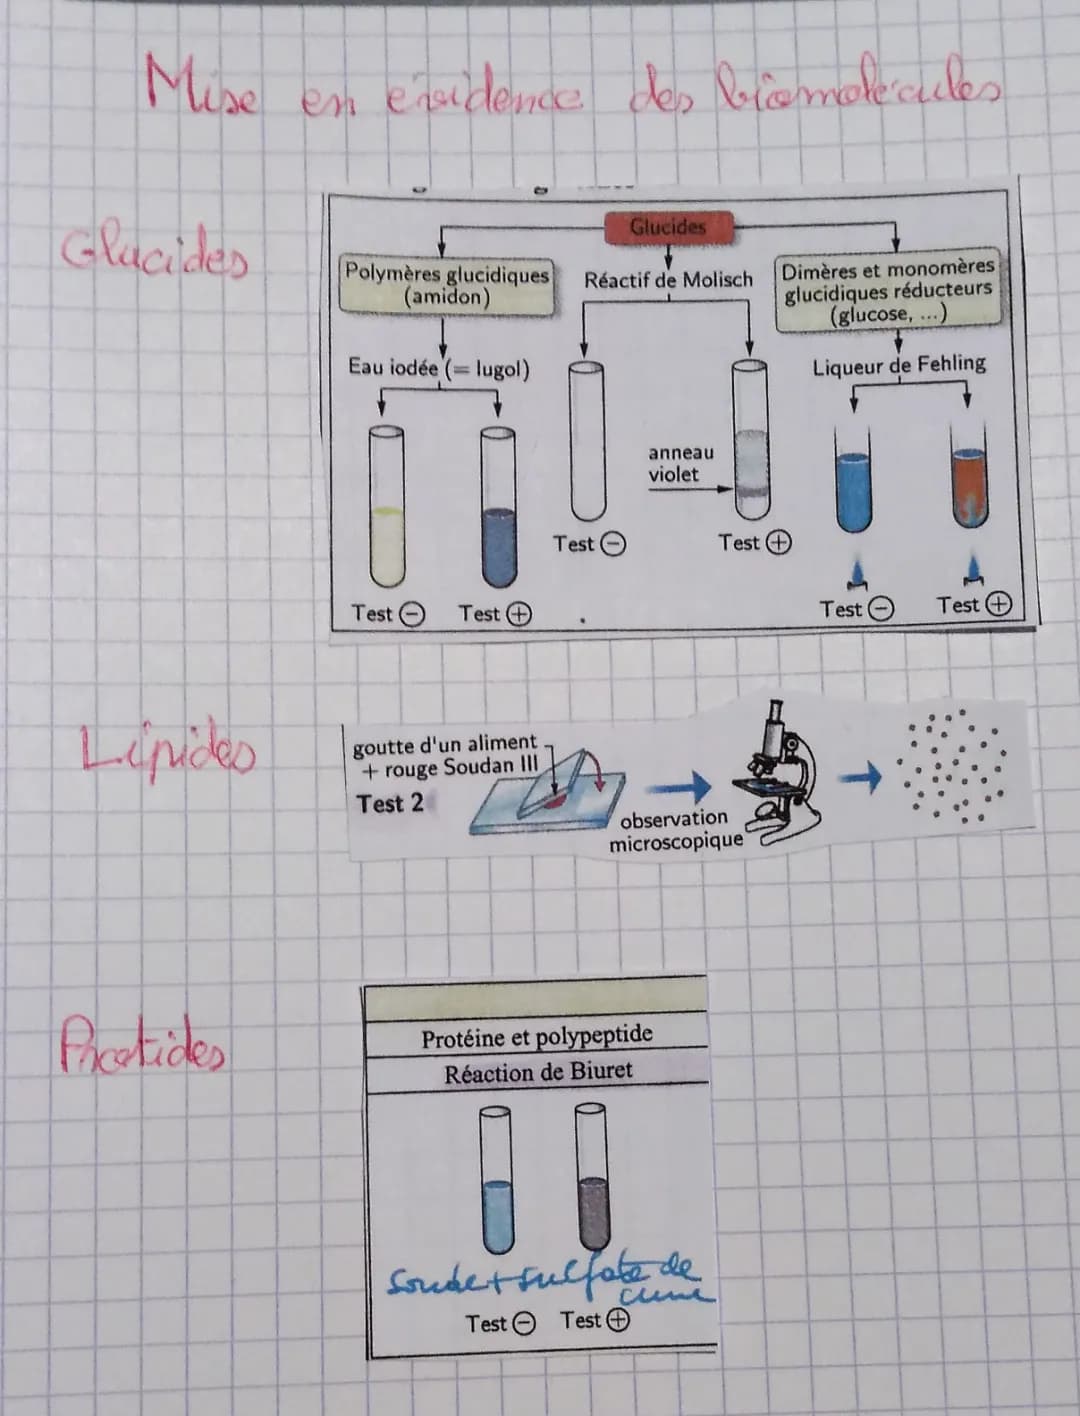 Mise en évidence des biomolécules
Glucides
Glucides
Polymères glucidiques
(amidon)
Réactif de Molisch
Dimères et monomères
glucidiques réducteurs
(glucose, ...)
Eau iodée (= lugol)
Liqueur de Fehling
anneau
violet
Test ⊖
Test ⊕
Test ⊖
Test ⊕
Test ⊖
Test ⊕
Lipides
goutte d'un aliment
+ rouge Soudan III
Test 2
observation
microscopique
Protides
Protéine et polypeptide
Réaction de Biuret
Soude + sulfate de
cuivre
Test ⊖ Test ⊕